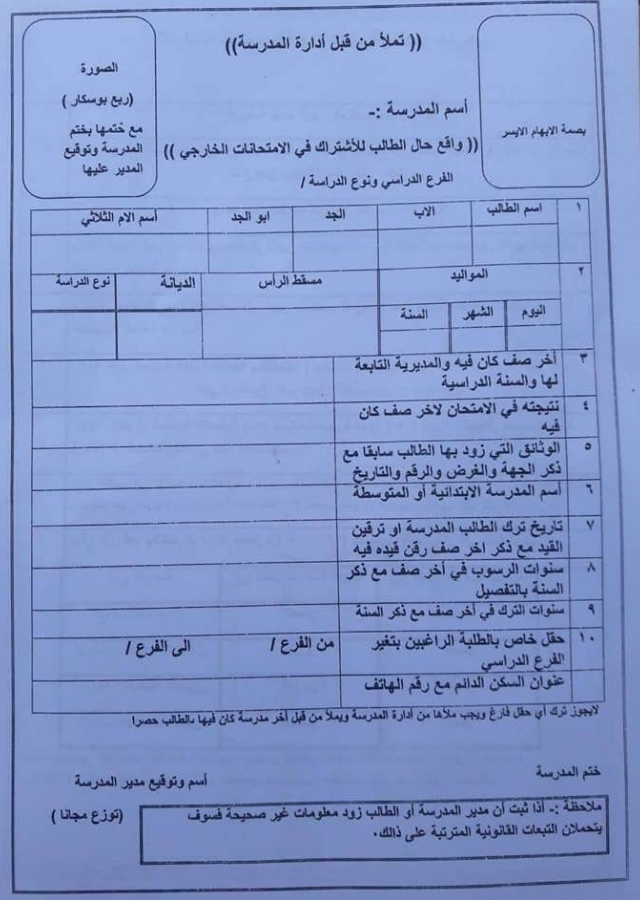 (( تملأ من قبل أدارة المدرسة))
بصمة الابهام الايسر
الصورة
(ربع بوسكار )
مع ختمها بختم
المدرسة وتوقيع
المدير عليها
أسم المدرسة :-
(( واقع حال الطالب للأشتراك في الامتحانات الخارجي ))
الفرع الدراسي ونوع الدراسة /
١ اسم الطالب الاب الجد ابو الجد أسم الام الثلاثي
٢ المواليد مسقط الرأس الديانة نوع الدراسة
اليوم الشهر السنة
٣ أخر صف كان فيه والمديرية التابعة
لها والسنة الدراسية
٤ نتيجته في الامتحان لاخر صف كان
فيه
٥ الوثائق التي زود بها الطالب سابقا مع
ذكر الجهة والغرض والرقم والتاريخ
٦ أسم المدرسة الابتدائية أو المتوسطة
٧ تاريخ ترك الطالب المدرسة او ترقين
القيد مع ذكر اخر صف رقن قيده فيه
٨ سنوات الرسوب في أخر صف مع ذكر
السنة بالتفصيل
٩ سنوات الترك في أخر صف مع ذكر السنة
١٠ حقل خاص بالطلبة الراغبين بتغير من الفرع / الى الفرع /
الفرع الدراسي
عنوان السكن الدائم مع رقم الهاتف
لايجوز ترك أي حقل فارغ ويجب ملأها من أدارة المدرسة ويملأ من قبل أخر مدرسة كان فيها بالطالب حصرا
ختم المدرسة
أسم وتوقيع مدير المدرسة
ملاحظة :- أذا ثبت أن مدير المدرسة أو الطالب زود معلومات غير صحيحة فسوف
يتحملان التبعات القانونية المترتبة على ذالك٠
(توزع مجانا )